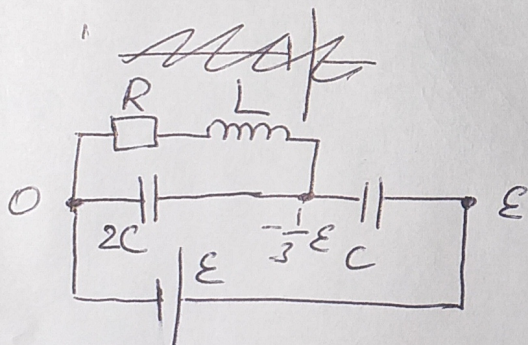 R L
0 2C -1/3 ℰ C ℰ
ℰ